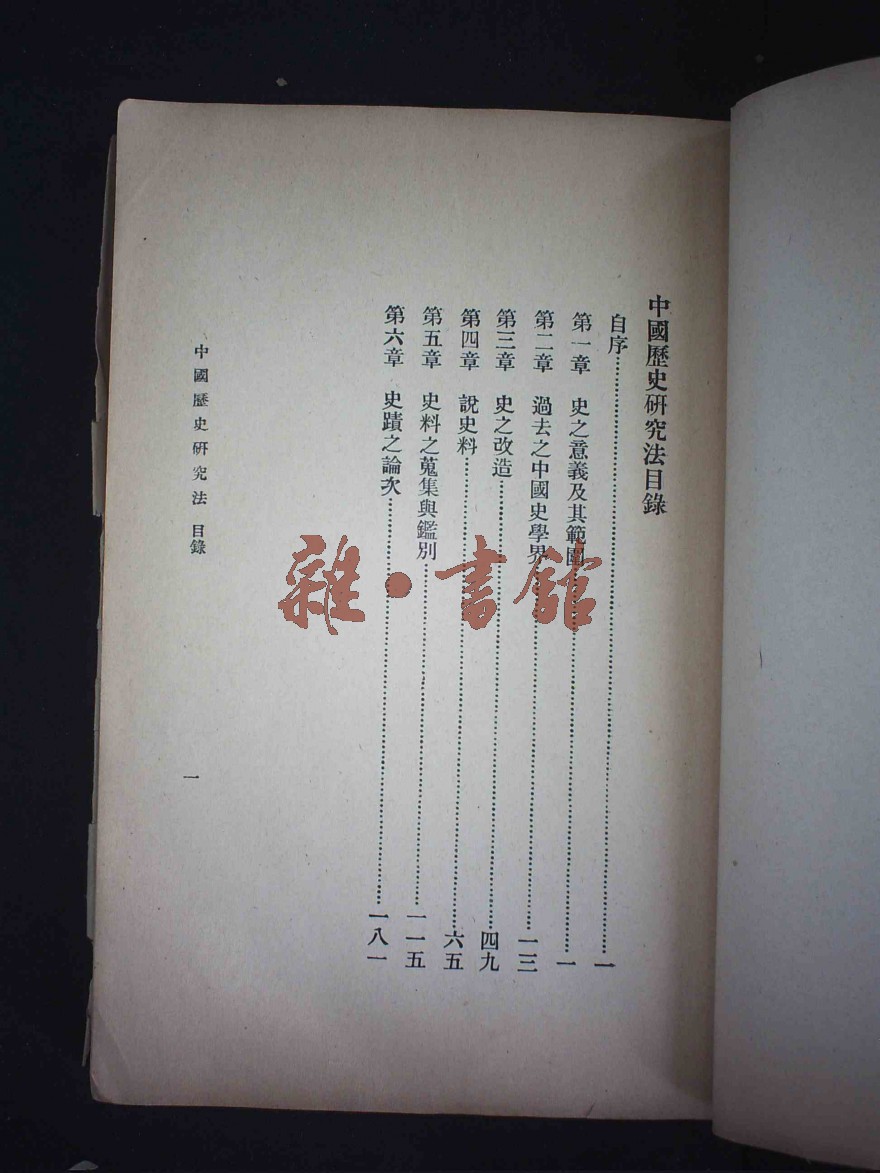 中國歷史研究法目錄
自序……一
第一章 史之意義及其範圍……一
第二章 過去之中國史學界……一三
第三章 史之改造……四九
第四章 說史料……六五
第五章 史料之蒐集與鑑別……一一五
第六章 史蹟之論次……一八一
中國歷史研究法 目錄
一
雜·書館